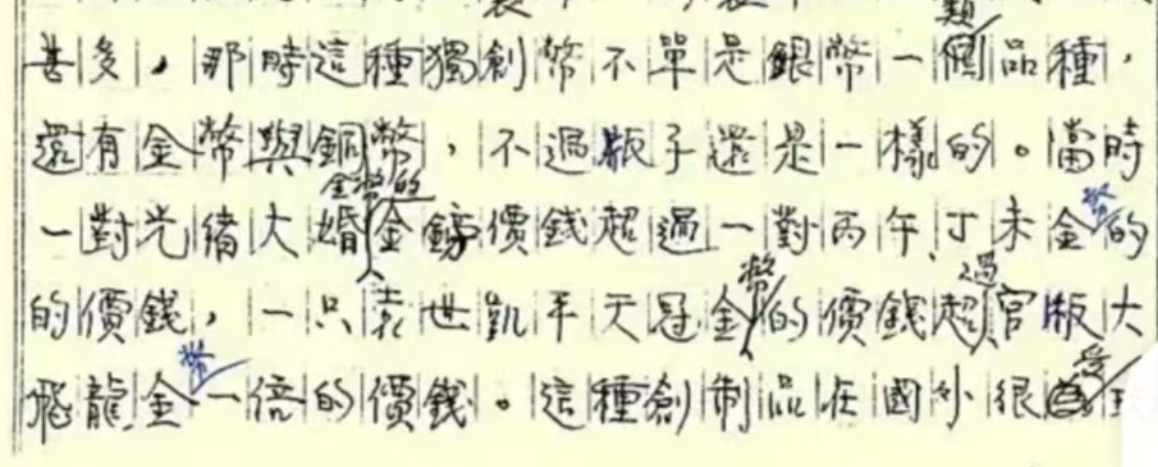 甚多，那時這種獨創幣不單是銀幣一類品種，
還有金幣與銅幣，不過瓶子還是一樣的。當時
一對光緒大婚金幣的金鎊價錢超過一對丙午、丁未金幣的
的價錢，一只袁世凱平天冠金幣的價錢超過官版大
飛龍金幣一倍的價錢。這種創制品在國外很受